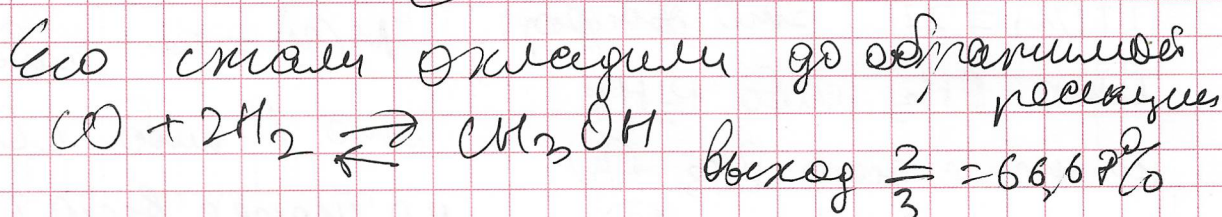 Его сжали охладили до обратимой
реакции
CO + 2H₂ ⇄ CH₃OH
выход 2/3 = 66,67%